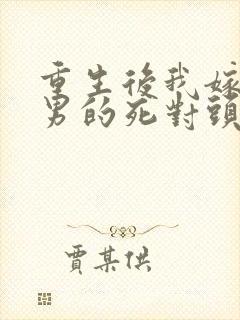 重生後我嫁
男的死對頭
賈某供